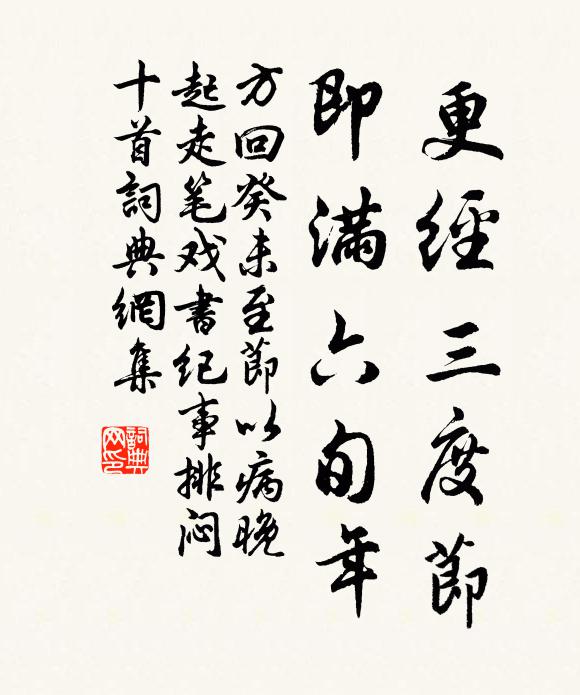 更經三度節
即滿六旬年
方回癸未至節以病晚
起走笔戏書纪事排闷
十首詞典網集
詞典
网印